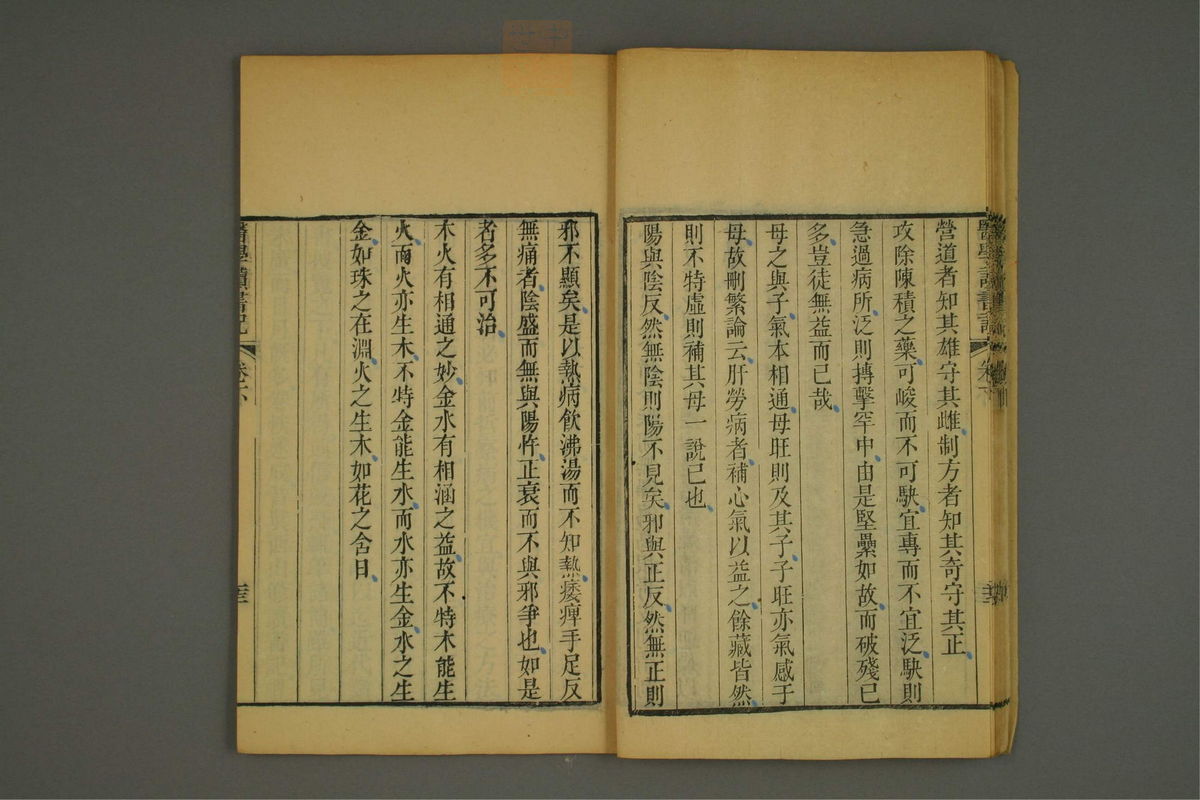 營道者知其雄守其雌制方者知其奇守其正
攻除陳積之藥可峻而不可駃宜專而不宜泛駃則
急過病所泛則搏擊罕中由是堅壘如故而破殘已
多豈徒無益而已哉
母之與子氣本相通母旺則及其子子旺亦氣感于
母故刪繁論云肝勞病者補心氣以益之餘藏皆然
則不特虛則補其母一說已也
陽與陰反然無陰則陽不見矣邪與正反然無正則
邪不顯矣是以熱病飲沸湯而不知熱痿痺手足反
無痛者陰盛而無與陽忤正衰而不與邪爭也如是
者多不可治
木火有相通之妙金水有相涵之益故不特木能生
火而火亦生木不特金能生水而水亦生金水之生
金如珠之在淵火之生木如花之含日
醫學讀書記
卷下